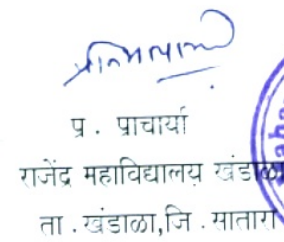 प्र . प्राचार्या
राजेंद्र महाविद्यालय खंडाळा
ता . खंडाळा,जि . सातारा